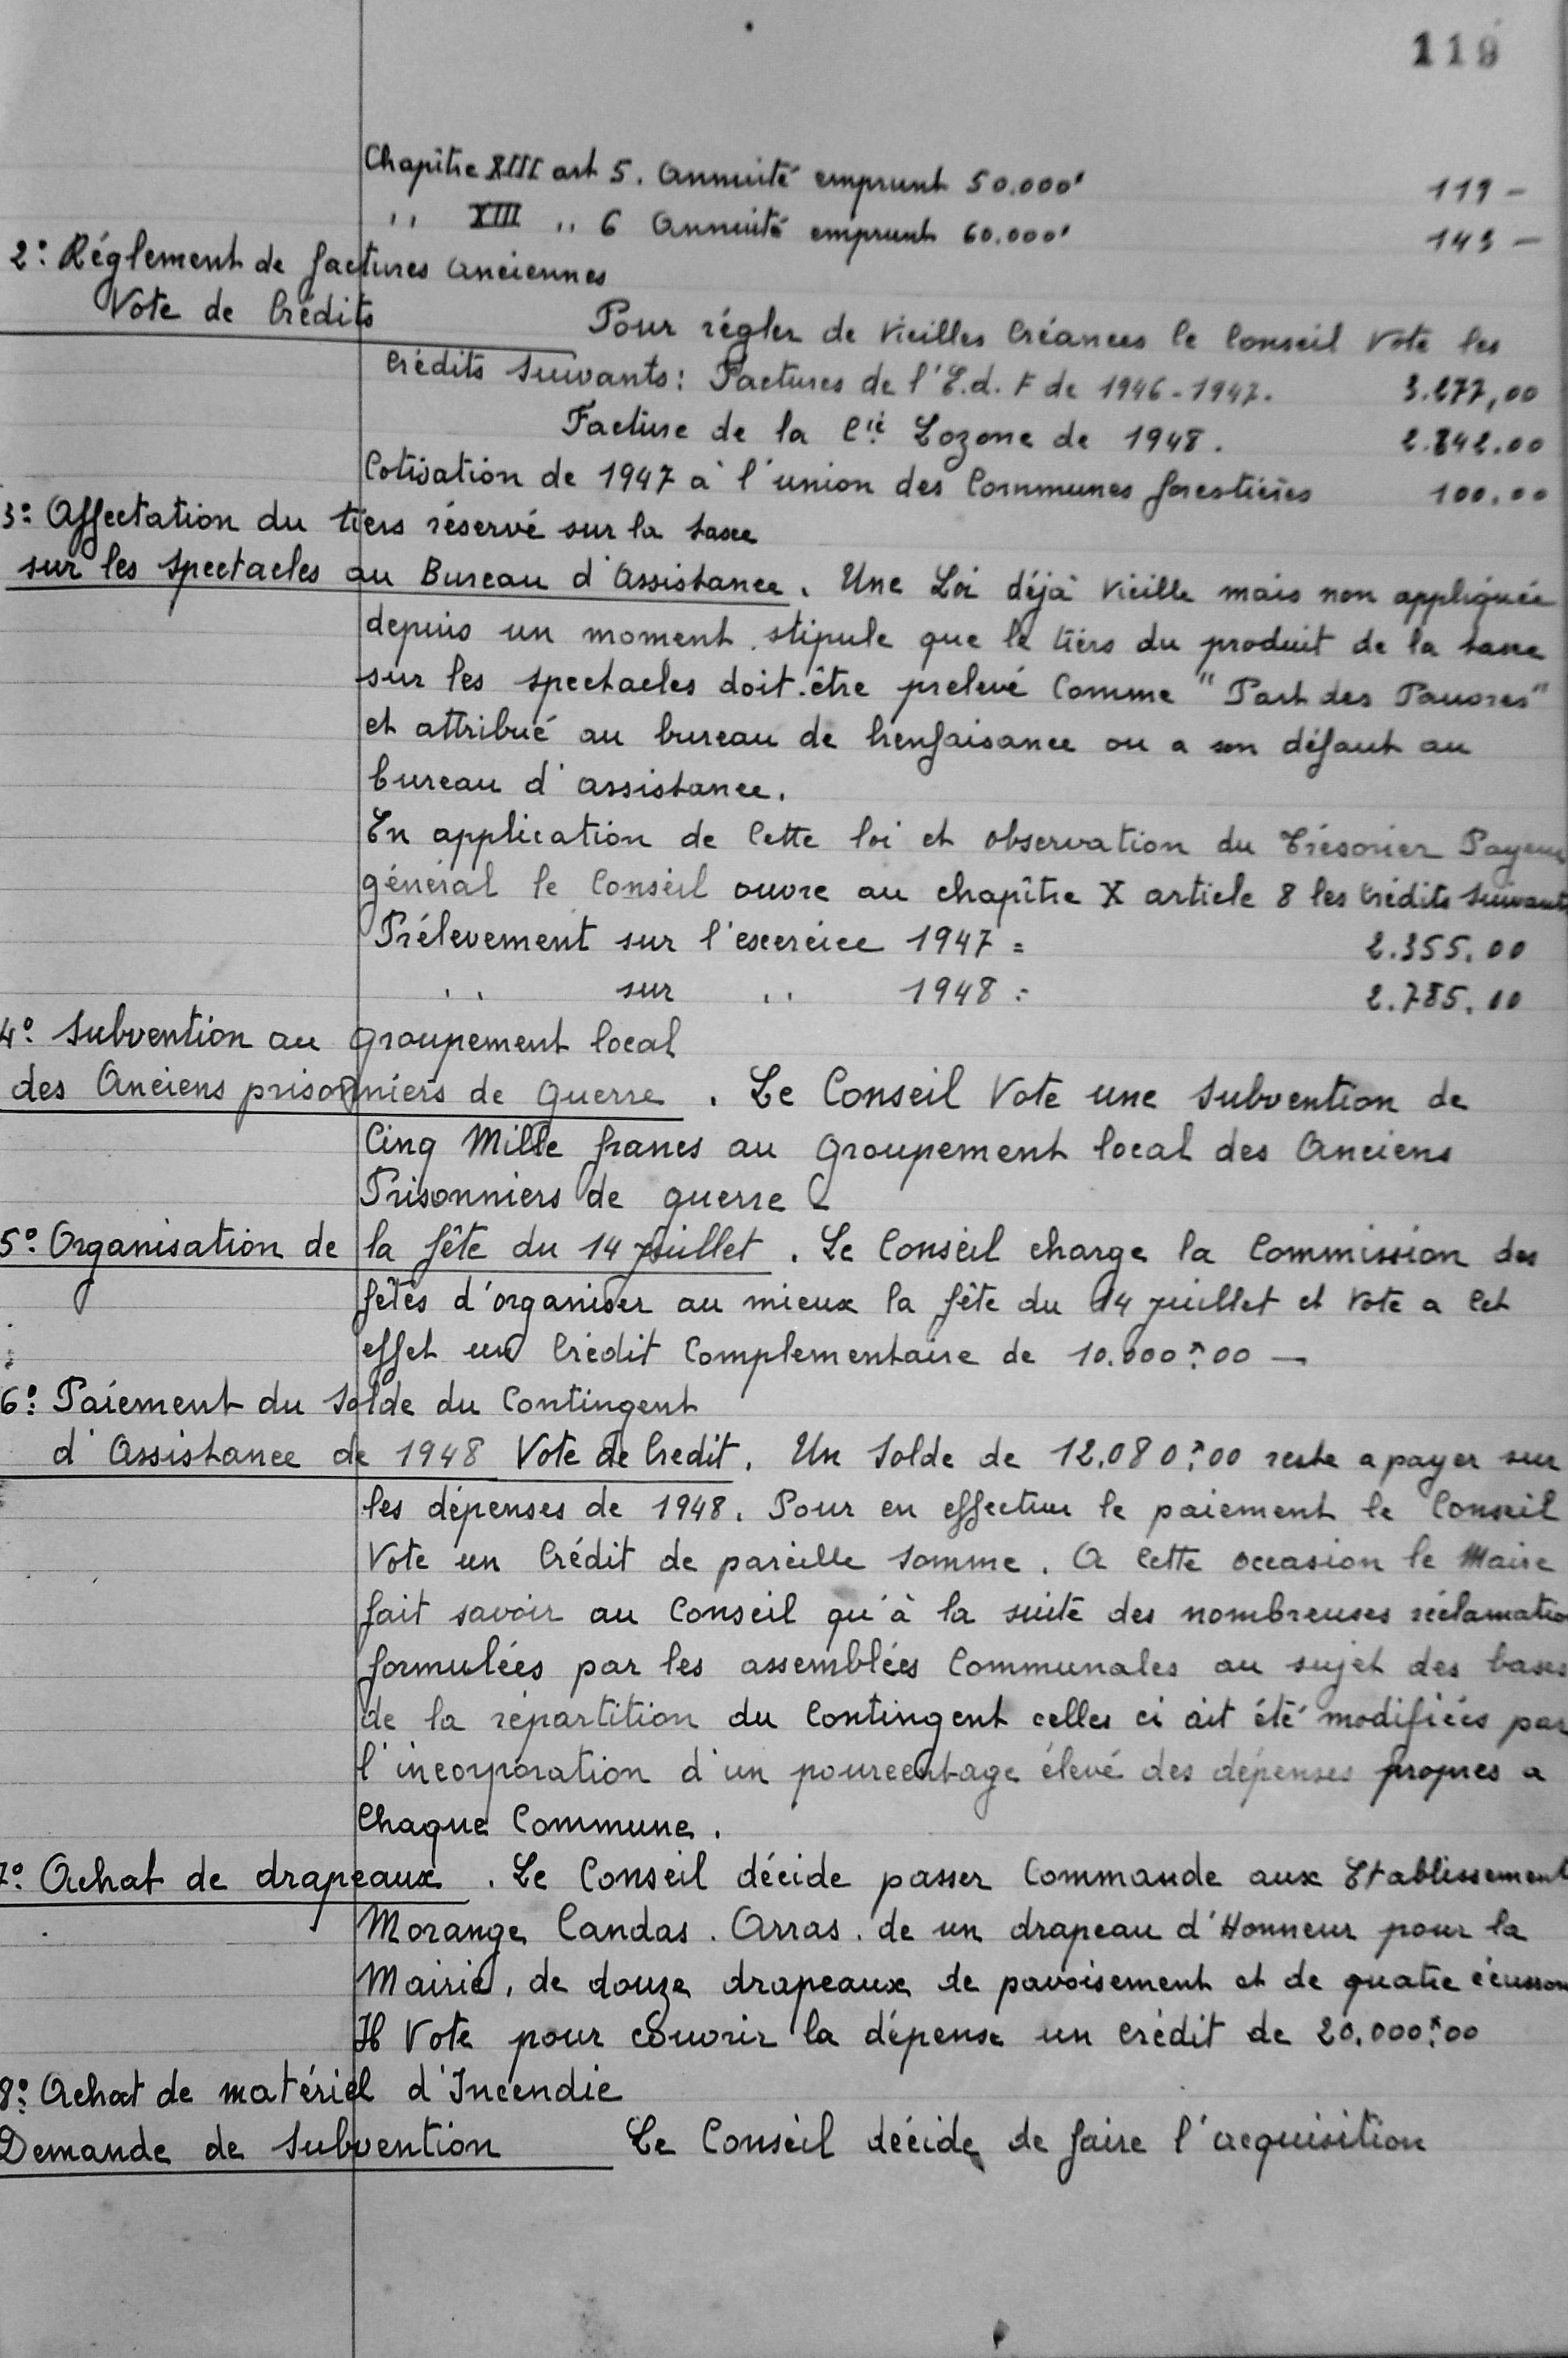 119
Chapître XIII art 5. Annuité emprunt 50.000' 119 –
" XIII " 6 Annuité emprunt 60.000' 143 –
2° Réglement de factures anciennes
Vote de Crédits Pour régler de vieilles Créances le Conseil Vote les
Crédits Suivants: Factures de l'E.d.F de 1946-1947. 3.277,00
Facture de la Cie Lozone de 1948. 2.842.00
Cotisation de 1947 à l'union des Communes forestières 100.00
3° Affectation du tiers réservé sur la taxe
sur les spectacles au Bureau d'Assistance. Une Loi déjà vieille mais non appliquée
depuis un moment stipule que le tiers du produit de la taxe
sur les spectacles doit être prelevé Comme "Part des Pauvres"
et attribué au bureau de bienfaisance ou a son défaut au
bureau d'assistance.
En application de Cette loi et observation du Trésorier Payeur
général le Conseil ouvre au chapître X article 8 les Crédits Suivants
Prélevement sur l'exercice 1947 = 2.355.00
" sur " 1948 = 2.785.00
4° Subvention au groupement local
des Anciens prisonniers de Guerre. Le Conseil Vote une Subvention de
Cinq Mille francs au Groupement local des Anciens
Prisonniers de guerre
5° Organisation de la fête du 14 Juillet. Le Conseil charge la Commission des
fêtes d'organiser au mieux la fête du 14 juillet et Vote a Cet
effet un Crédit Complementaire de 10.000F00 —
6° Paiement du Solde du Contingent
d'Assistance de 1948 Vote de Credit. Un Solde de 12.080F00 reste a payer sur
les dépenses de 1948. Pour en effectuer le paiement le Conseil
Vote un Crédit de pareille Somme. A Cette occasion le Maire
fait savoir au Conseil qu'à la suite des nombreuses réclamatio
formulées par les assemblées Communales au sujet des bases
de la répartition du Contingent celles ci ait été modifiées par
l'incorporation d'un pourcentage élevé des dépenses propres a
Chaque Commune.
7° Achat de drapeaux. Le Conseil décide passer Commande aux Etablissement
Morange Candas. Arras. de un drapeau d'Honneur pour la
Mairie, de douze drapeaux de pavoisement et de quatre écusson
Il Vote pour couvrir la dépense un crédit de 20.000F00
8° Achat de matériel d'Incendie
Demande de Subvention Le Conseil décide de faire l'acquisition